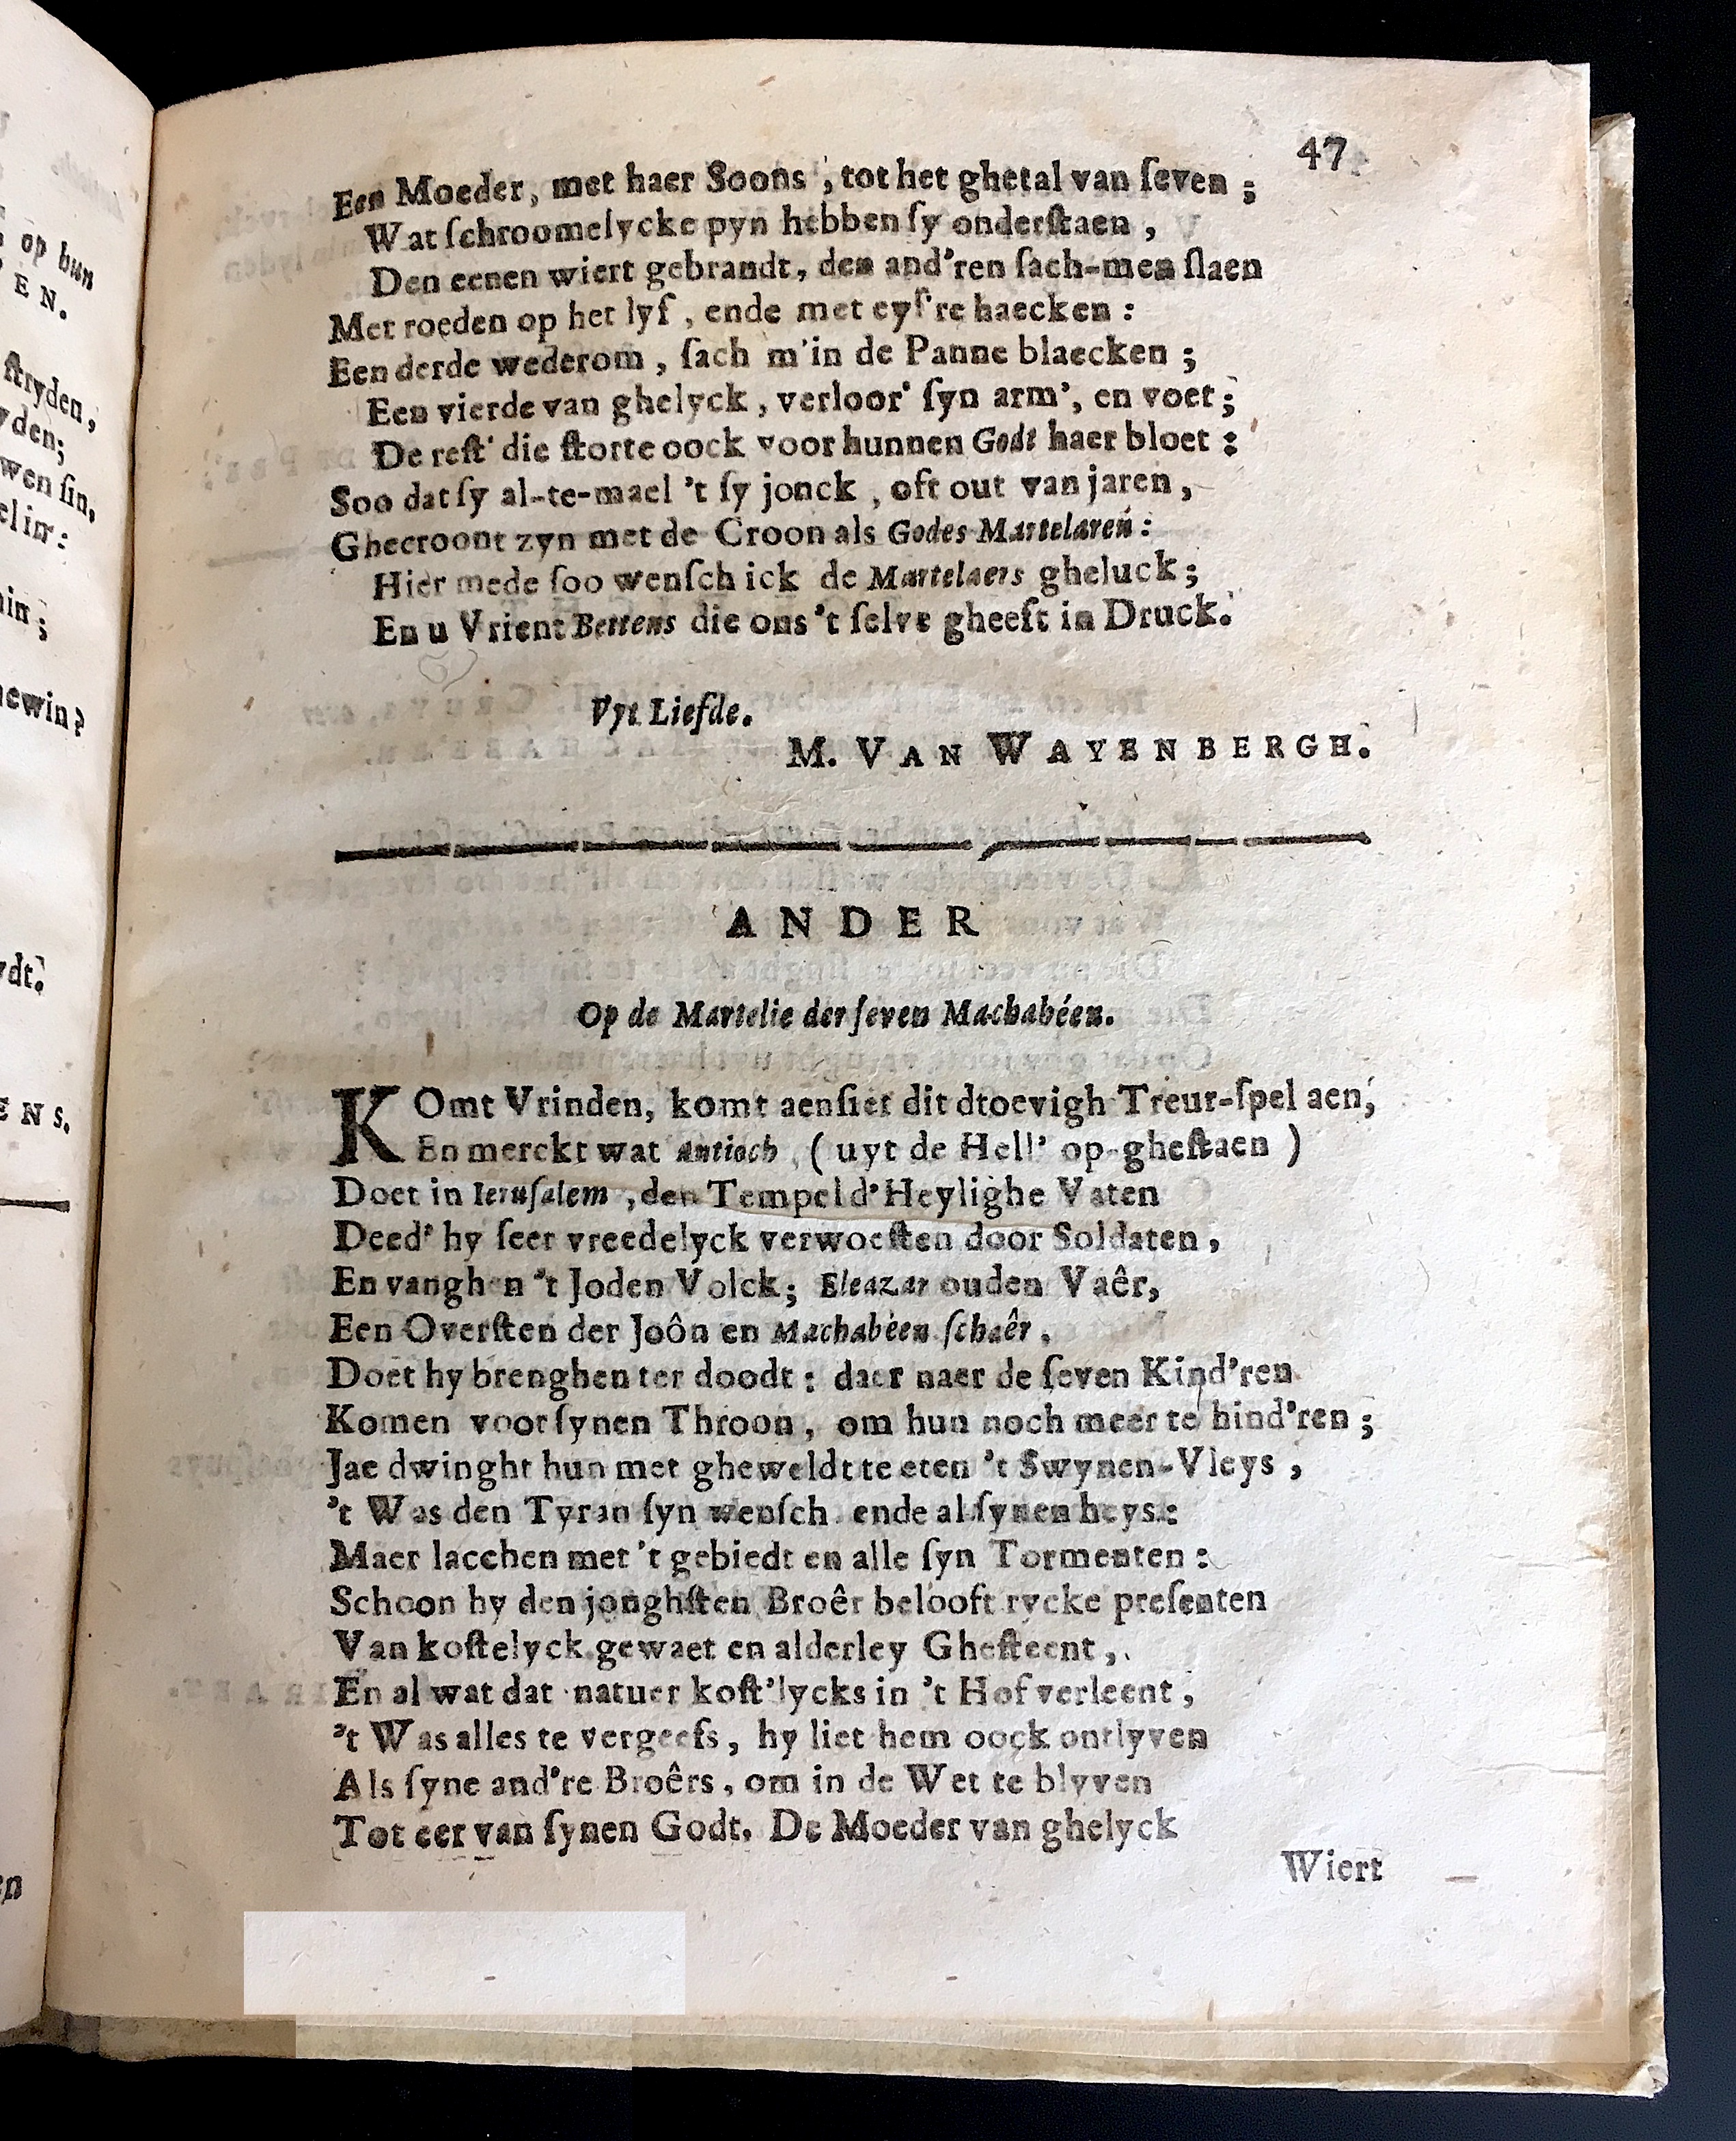 47
Een Moeder, met haer Soons, tot het ghetal van ſeven;
Wat ſchroomelycke pyn hebben ſy onderſtaen,
Den eenen wiert gebrandt, den and'ren ſach-men ſlaen
Met roeden op het lyf, ende met eyſ're haecken:
Een derde wederom, ſach m'in de Panne blaecken;
Een vierde van ghelyck, verloor' ſyn arm', en voet;
De reſt' die ſtorte oock voor hunnen Godt haer bloet:
Soo dat ſy al-te-mael 't ſy jonck, oft out van jaren,
Ghecroont zyn met de Croon als Godes Martelaren:
Hier mede ſoo wenſch ick de Martelaers gheluck;
En u Vrient Bettens die ons 't ſelve gheeft in Druck.
Vyt Liefde.
M. VAN WAYENBERGH.
ANDER
Op de Martelie der ſeven Machabéen.
KOmt Vrinden, komt aenſiet dit dtoevigh Treur-ſpel aen,
En merckt wat Antioch, (uyt de Hell' op-gheſtaen)
Doet in Ieruſalem, den Tempel d'Heylighe Vaten
Deed' hy ſeer vreedelyck verwoeſten door Soldaten,
En vanghen 't Joden Volck; Eleazar ouden Vaêr,
Een Overſten der Joôn en Machabéen ſchaêr,
Doet hy brenghen ter doodt: daer naer de ſeven Kind'ren
Komen voor ſynen Throon, om hun noch meer te hind'ren;
Jae dwinght hun met gheweldt te eten 't Swynen-Vleys,
't Was den Tyran ſyn wenſch ende al ſynen heys:
Maer lacchen met 't gebiedt en alle ſyn Tormenten:
Schoon hy den jonghſten Broêr belooft rycke preſenten
Van koſtelyck gewaet en alderley Gheſteent,
En al wat dat natuer koſt'lycks in 't Hof verleent,
't Was alles te vergeefs, hy liet hem oock ontlyven
Als ſyne and're Broêrs, om in de Wet te blyven
Tot eer van ſynen Godt. De Moeder van ghelyck
Wiert